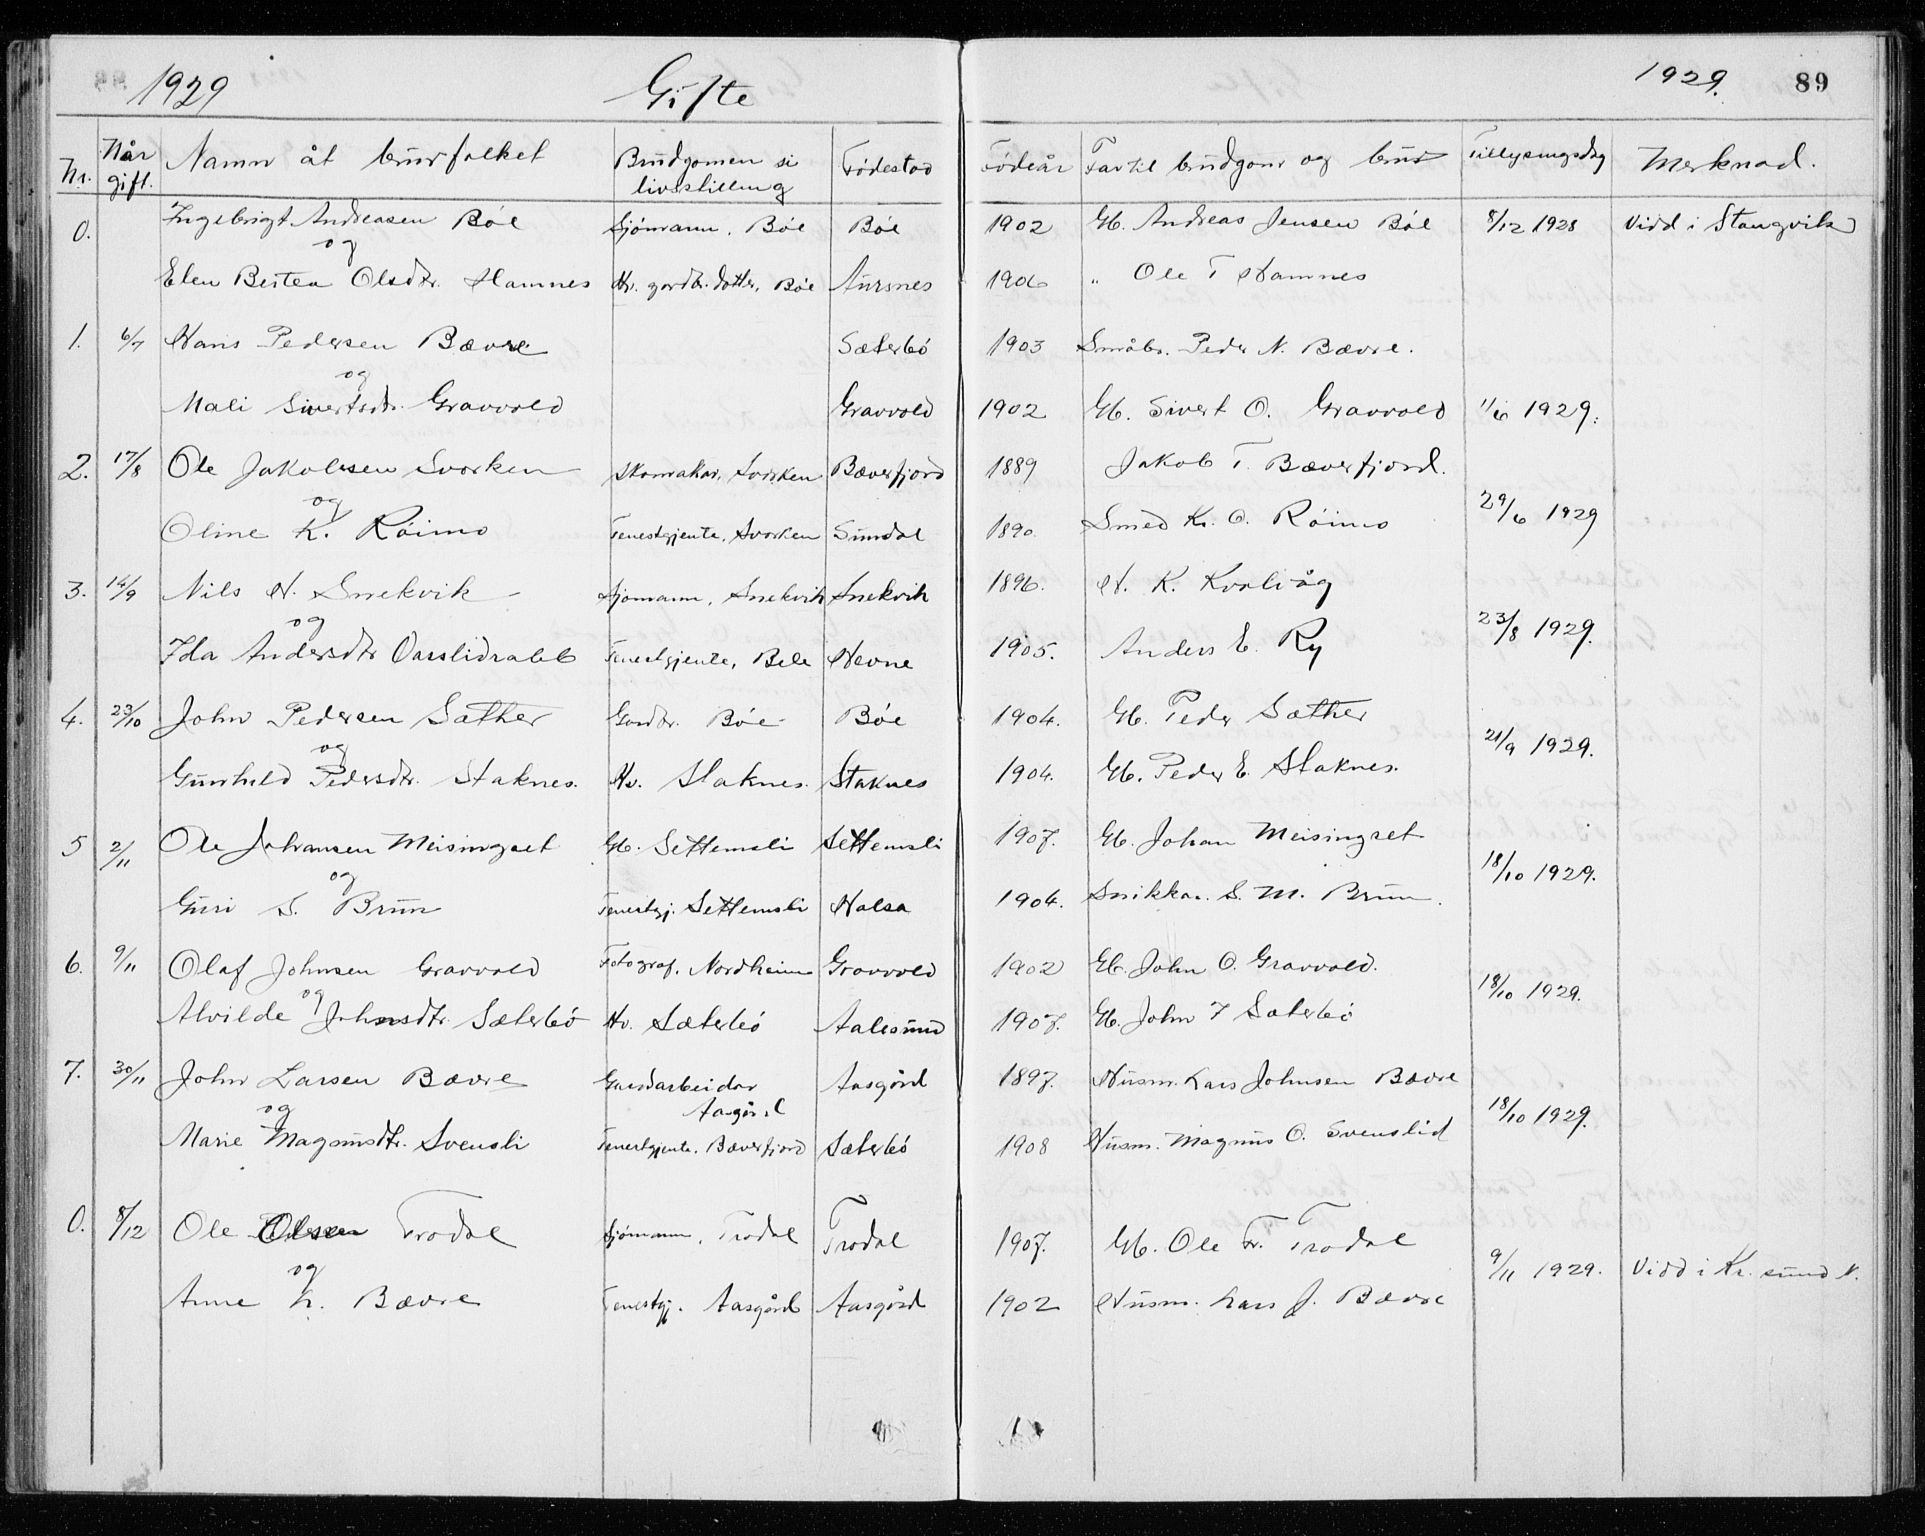 1929 Gifte 1929. 89
Nr. Når gift. Namn åt brurfolket Brudgomen si livsstilling Fødestad Fødeår Far til brudgom og brud Tillysingsdag Merknad.
0. Ingebrigt Andreasen Bøe Sjømann, Bøe Bøe 1902 Gb. Andreas Jensen Bøe 8/12 1928 Vidd i Stangvik
og
Elen Bertea Olsdtr. Hamnes Hv. gardbr. dotter, Bøe Aursnes 1906 " Ole T Hamnes
1. 6/7 Hans Pedersen Bævre Sæterbø 1903 Småbr. Peder N. Bævre.
og
Mali Sivertsdtr. Gravvold Gravvold 1902 Gb. Sivert O. Gravvold 11/6 1929.
2. 17/8 Ole Jakobsen Svorken Skomakar, Svorken Bæverfjord 1889 Jakob T. Bæverfjord.
og 29/6 1929
Oline K. Røimo Tenestgjente, Svorken Sundal 1890. Smed Kr. O. Røimo
3. 14/9 Nils H. Snekvik Sjømann, Snekvik Snekvik 1896. H. K. Kvalvåg
og 23/8 1929.
Ida Andersdtr Tenestgjente, Bele Hevne 1905. Anders E. Ry
4. 23/10 John Pedersen Sæther Gardbr. Bøe Bøe 1904. Gb. Peder Sæther
og 21/9 1929.
Gunhild Pedersdtr. Staknes. Hv. Staknes. Staknes 1904. Gb. Peder E. Staknes.
5 2/11 Ole Johansen Meisingset Gb. Settemsli Settemsli 1907. Gb. Johan Meisingset
og 18/10 1929.
Guri S. Brun Tenestgj. Settemsli Halsa 1904. Snikkar. S. M. Brun.
6. 9/11 Olaf Johnsen Gravvold Fotograf, Nordheim Gravvold 1902 Gb. John O. Gravvold.
og 18/10 1929.
Alvilde Johnsdtr. Sæterbø Hv. Sæterbø Aalesund 1907. Gb. John T Sæterbø
7. 30/11 John Larsen Bævre Gardarbeidar Aasgård Aasgård 1897. Husm. Lars Johnsen Bævre
og 18/10 1929.
Marie Magnusdtr. Svensli Tenestgjente. Bæverfjord Sæterbø 1908 Husm. Magnus O. Svenslid
0. 8/12 Ole Olsen Trodal Sjømann, Trodal Trodal 1907. Gb. Ole Tr. Trodal
og 9/11 1929. Vidd i Kr. sund N.
Anne L. Bævre Tenestgj. Aasgård Aasgård 1902 Husm. Lars J. Bævre